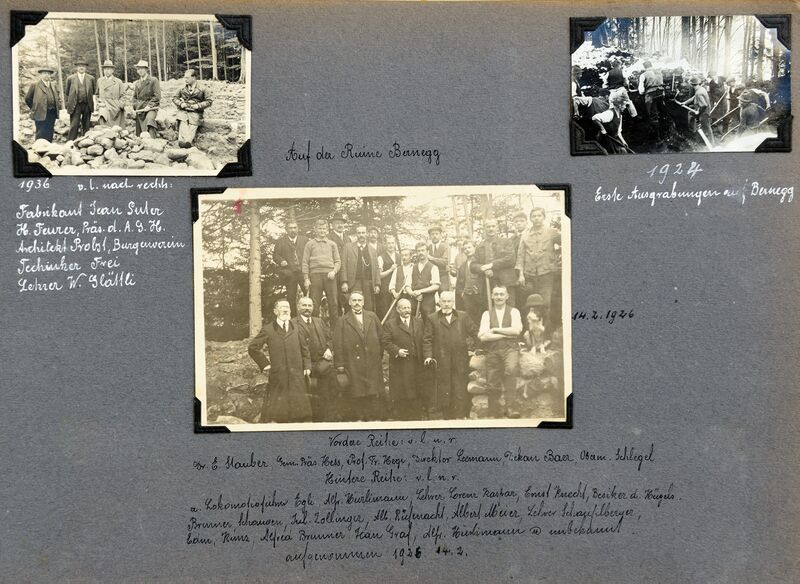 Auf der Ruine Bernegg
1936 v. l. nach rechts:
Fabrikant Jean Suter
H. Feurer, Präs. d. A. G. H.
Architekt Probst, Burgenverein
Techniker Frei
Lehrer W. Glättli
1924
Erste Ausgrabungen auf Bernegg
14.2.1926
Vordere Reihe: v. l. n. r.
Dr. E. Stauber. Gem. Präs. Hess, Prof. Fr. Hegi, Direktor Leemann Dekan Baer, Obam. Schlegel
Hintere Reihe: v. l. n. r.
a. Lokomotivführer Egli. Alfr. Hürlimann, Lehrer Lorenz Kaspar, Ernst Knecht, Besitzer d. Hügels.
Brunner, Schauwen, Jul. Zollinger, Alb. Rüfenacht, Albert Meier, Lehrer Schaufelberger,
Edm. Kunz, Alfred Brunner. Jean Graf, Alfr. Hürlimann unbekannt
aufgenommen 1926 14.2.